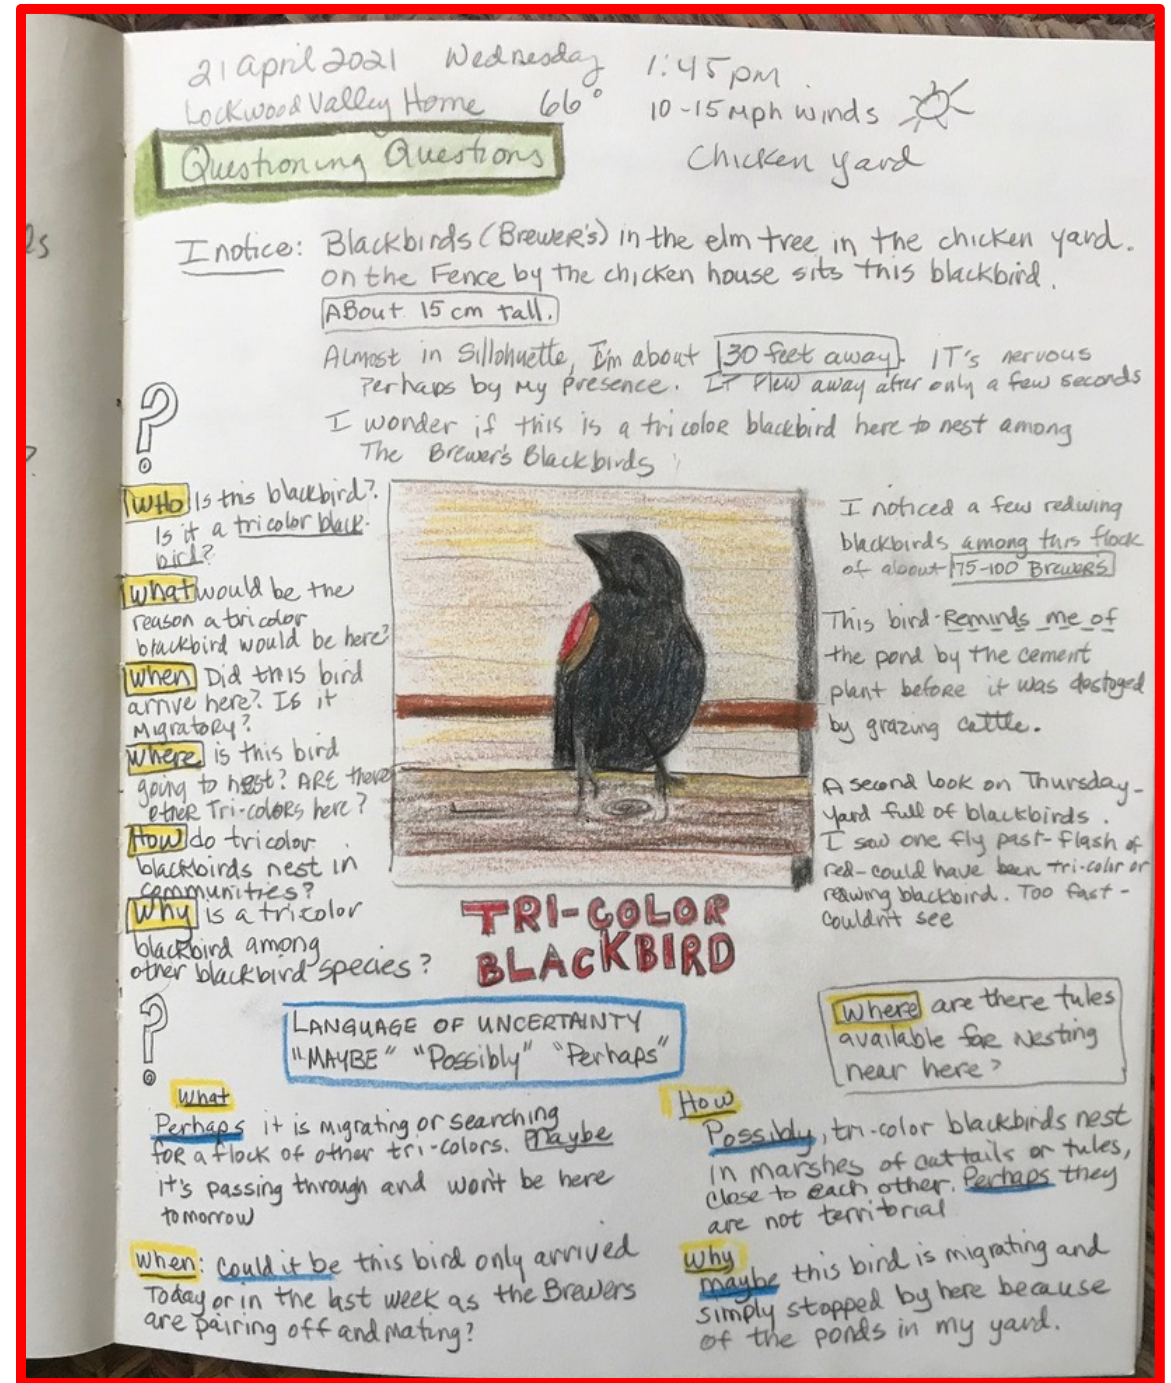 21 April 2021 Wednesday 1:45 pm
Lockwood Valley Home 66° 10-15 mph winds
Questioning Questions
Chicken yard
I notice: Blackbirds (Brewer's) in the elm tree in the chicken yard.
on the Fence by the chicken house sits this blackbird.
About 15 cm tall.
Almost in Sillohuette, I'm about 30 feet away. IT's nervous
perhaps by my presence. It flew away after only a few seconds
I wonder if this is a tricolor blackbird here to nest among
The Brewer's Blackbirds
?
Who Is this blackbird?
Is it a tricolor black-
bird?
What would be the
reason a tricolor
blackbird would be here?
When Did this bird
arrive here? Is it
Migratory?
Where is this bird
going to nest? ARE there
other Tri-colors here?
How do tricolor
blackbirds nest in
communities?
Why is a tricolor
blackbird among
other blackbird species?
I noticed a few redwing
blackbirds among this flock
of about 75-100 Brewers
This bird Reminds me of
the pond by the cement
plant before it was destoyed
by grazing cattle.
A second look on Thursday-
yard full of blackbirds.
I saw one fly past-flash of
red-could have been tri-color or
redwing blackbird. Too fast-
couldn't see
TRI-COLOR
BLACKBIRD
?
LANGUAGE OF UNCERTAINTY
"MAYBE" "Possibly" "Perhaps"
Where are there tules
available for Nesting
near here?
What
Perhaps it is migrating or searching
for a flock of other tri-colors. Maybe
it's passing through and won't be here
tomorrow
When: Could it be this bird only arrived
Today or in the last week as the Brewers
are pairing off and Mating?
How
Possibly, tri-color blackbirds nest
in marshes of cattails or tules,
close to each other. Perhaps they
are not territorial
Why
maybe this bird is migrating and
simply stopped by here because
of the ponds in my yard.